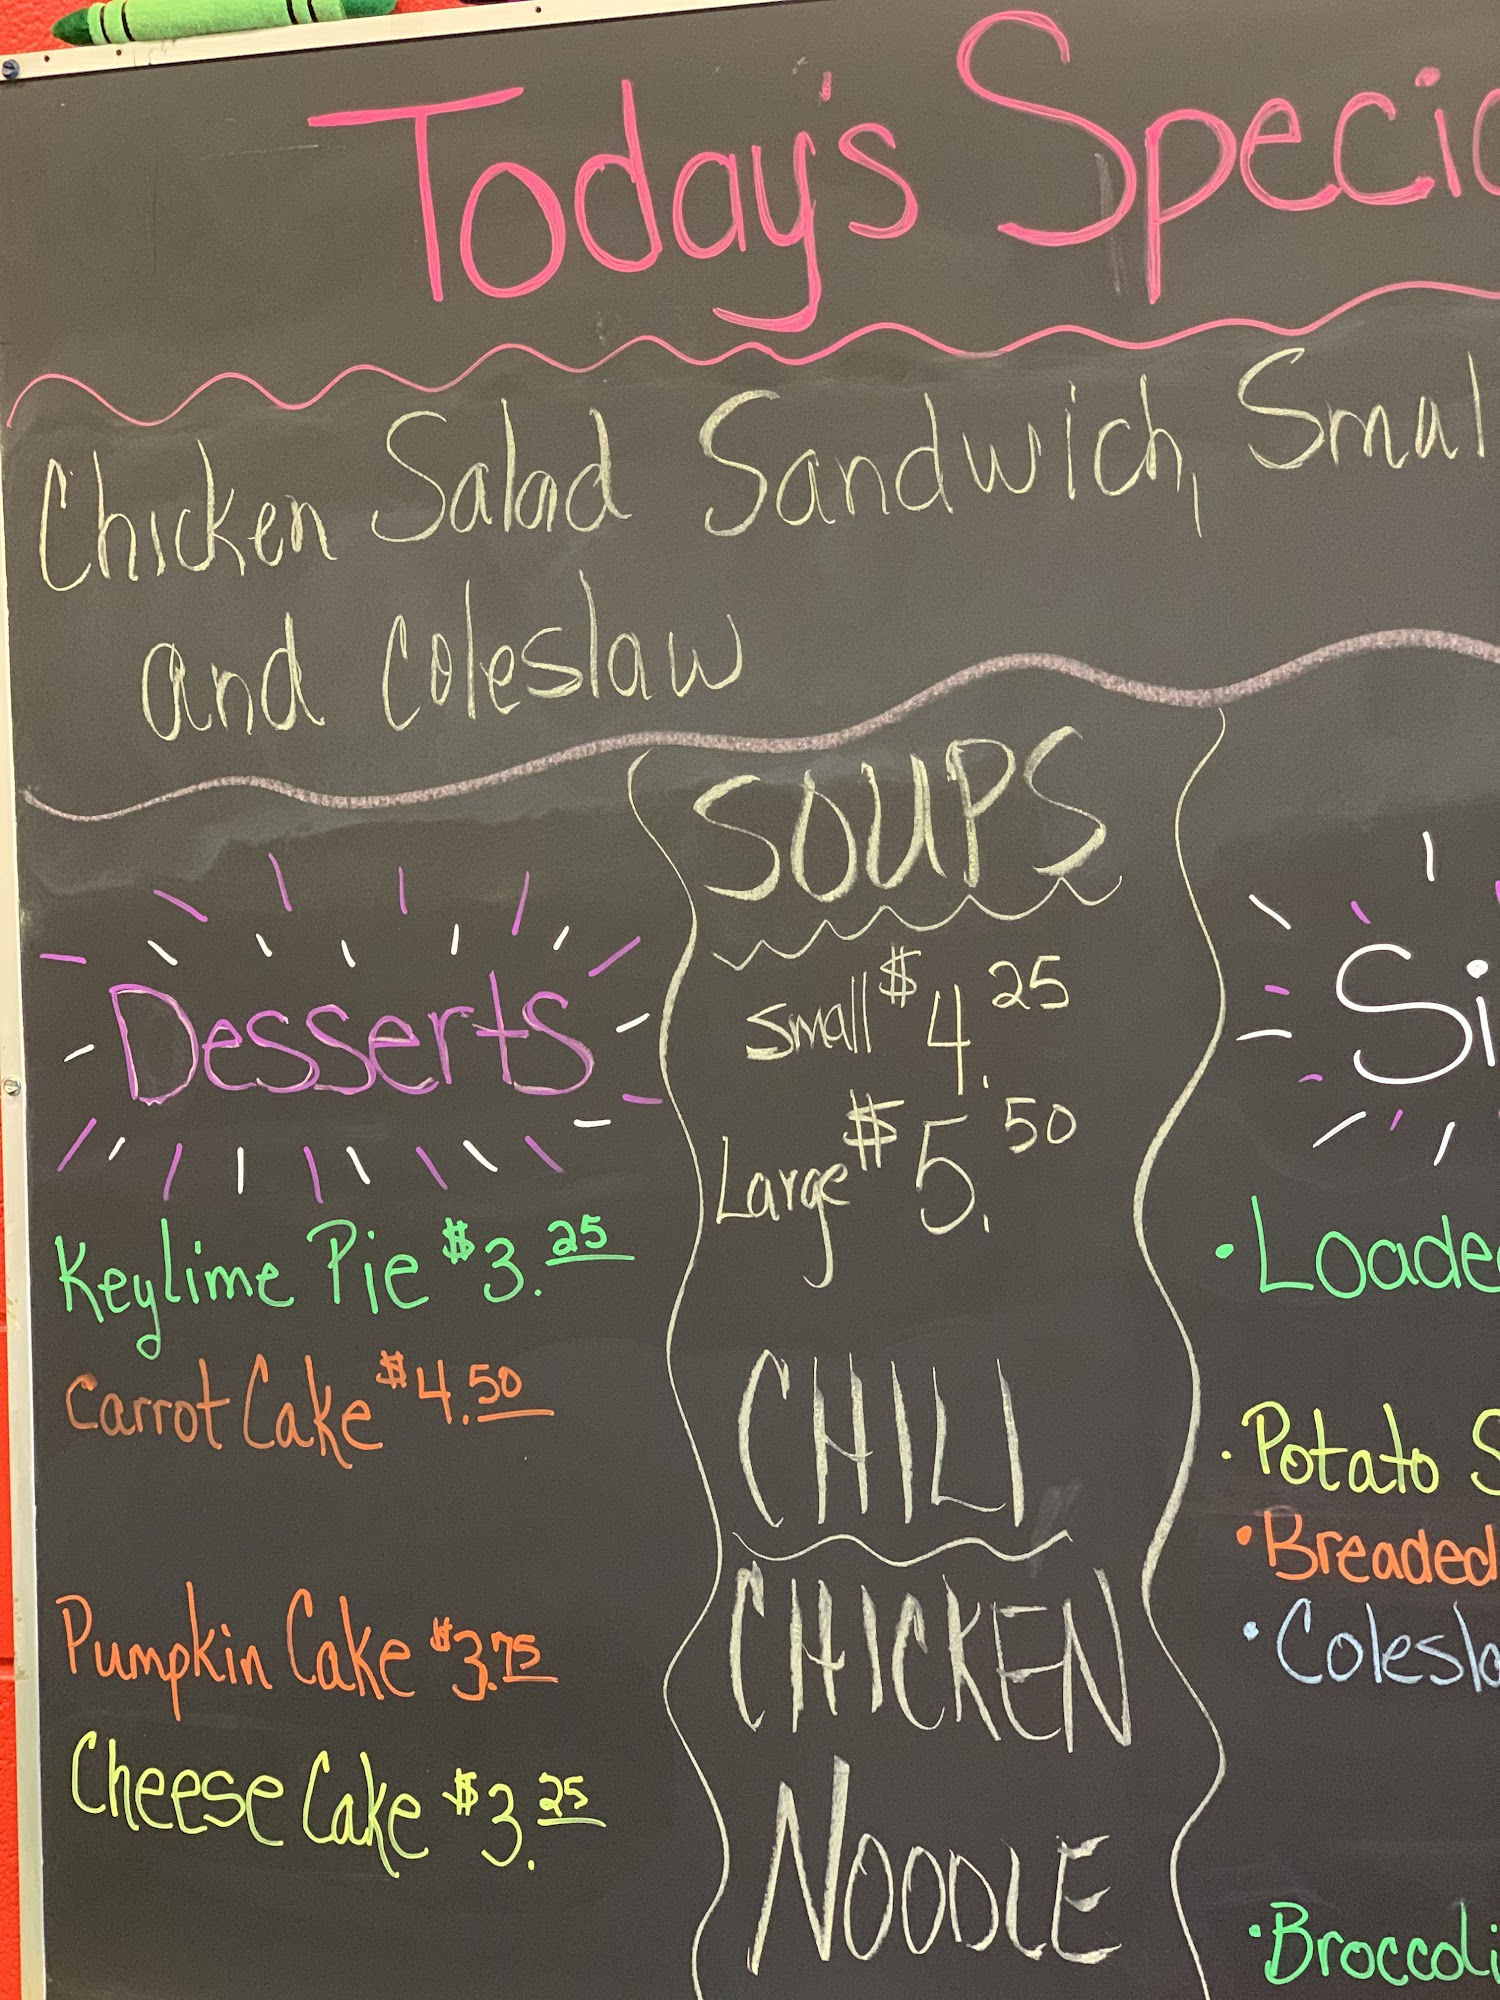 Today's Specia
Chicken Salad Sandwich, Small
and Coleslaw
Desserts
Keylime Pie $3.25
Carrot Cake $4.50
Pumpkin Cake $3.75
Cheese Cake $3.25
SOUPS
Small $4.25
Large $5.50
CHILI
CHICKEN
NOODLE
Si
• Loaded
• Potato S
• Breaded
• Colesla
• Broccoli